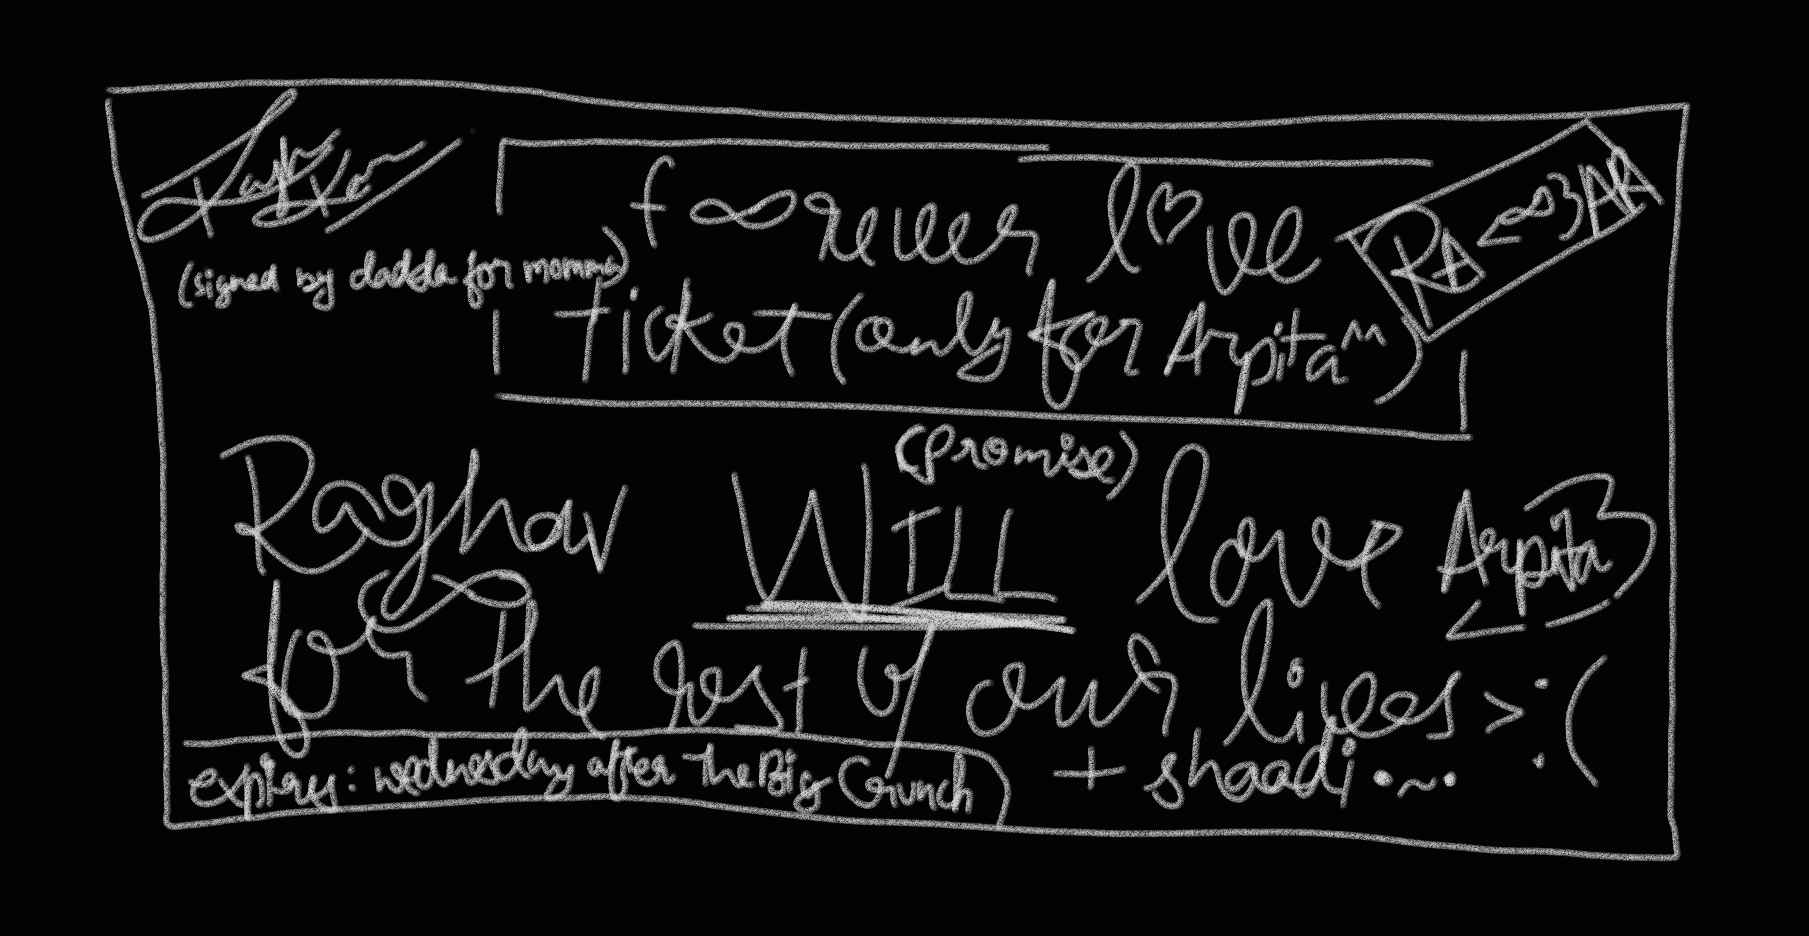 (signed by dadda for momma)
f∞rever l♡ve
RA <∞3 AR
Ticket (only for Arpita^^)
(promise)
Raghav WILL love Arpita <3
for the rest of our lives >:(
+ shaadi •~•
expiry: wednesday after the Big Crunch